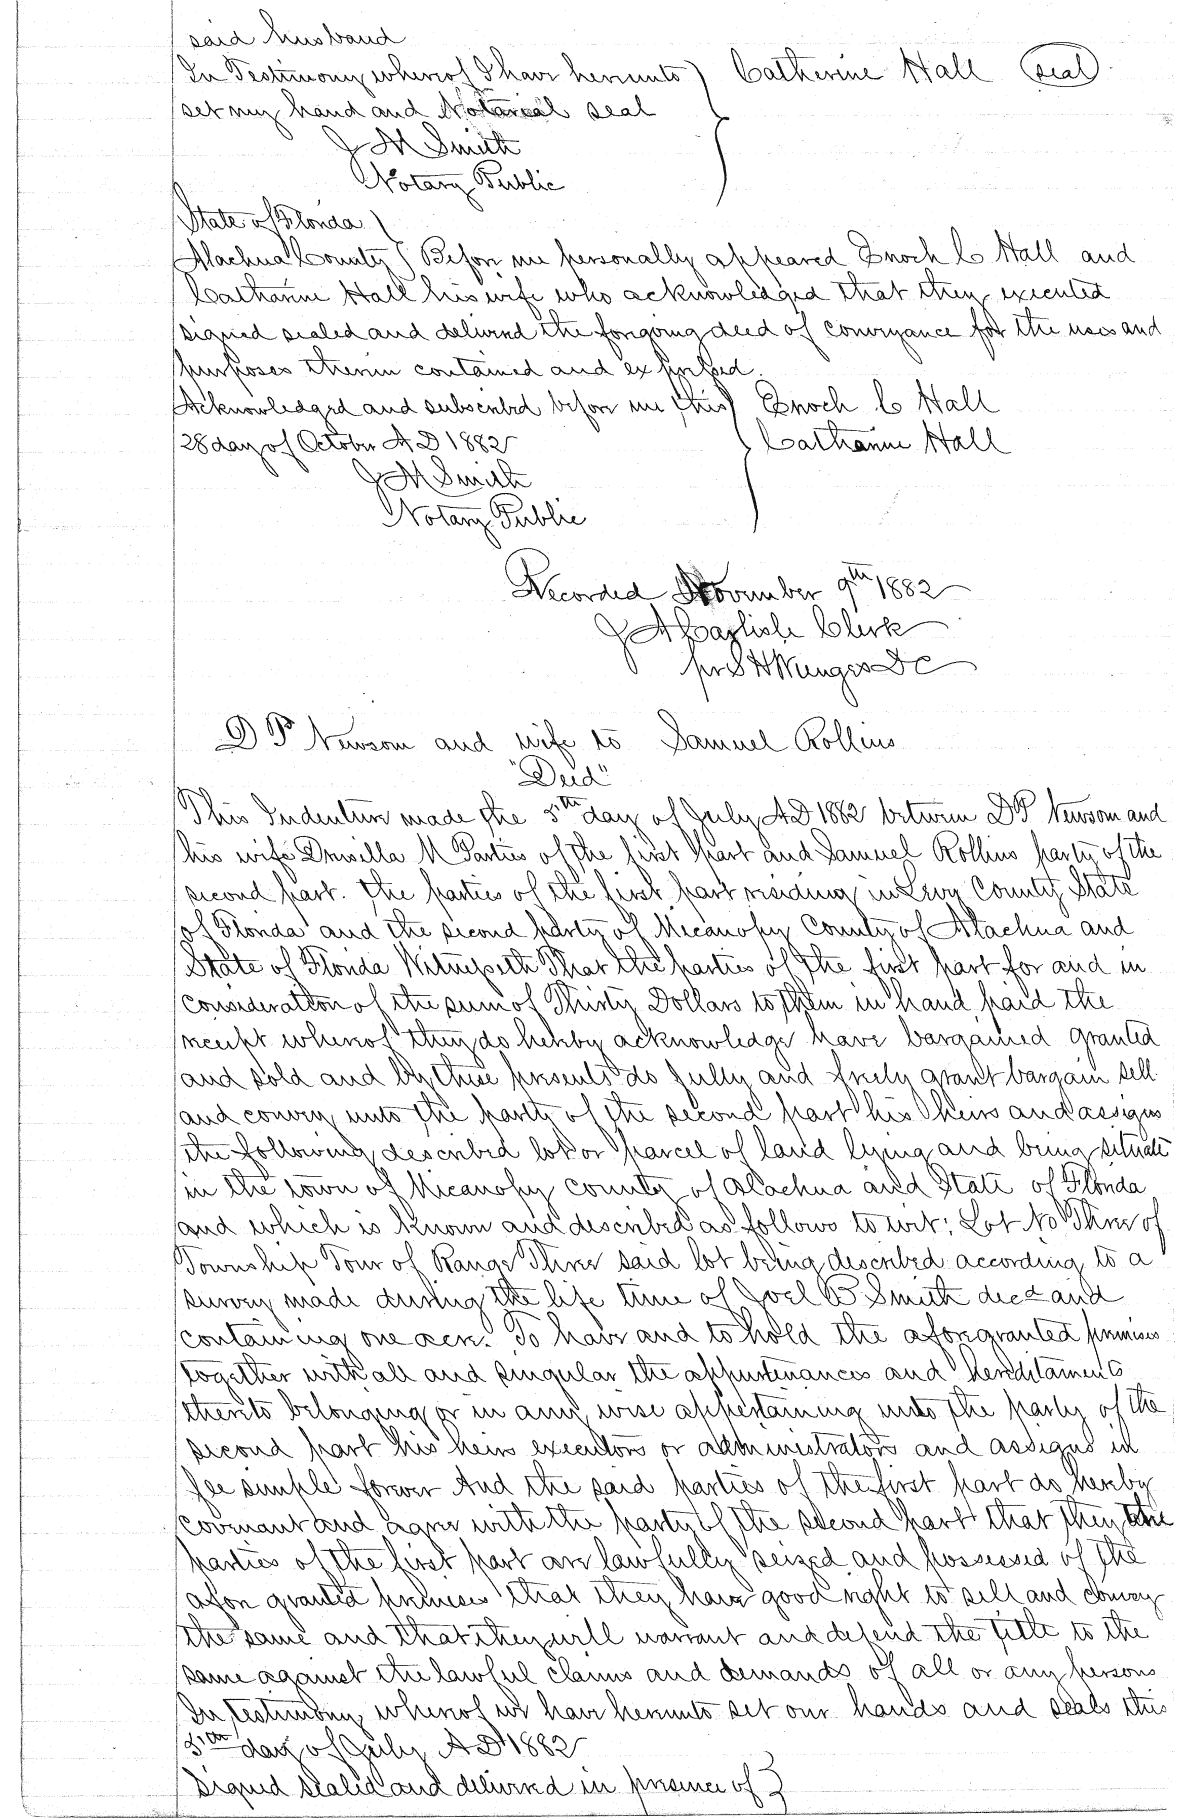 said husband
In Testimony whereof I have hereunto ) Catherine Hall (seal)
set my hand and Notarial seal
J M Smith
Notary Public
State of Florida )
Alachua County ) Before me personally appeared Enoch C Hall and
Catharine Hall his wife who acknowledged that they executed
signed sealed and delivered the foregoing deed of conveyance for the uses and
purposes therein contained and expressed.
Acknowledged and subscribed before me this ) Enoch C Hall
28 day of October A D 1882 Catharine Hall
J M Smith
Notary Public
Recorded November 9th 1882
J A Carlisle Clerk
per S H Wienges D C
D P Newsom and wife to Samuel Rollins
"Deed"
This Indenture made the 5th day of July A D 1882 between D P Newsom and
his wife Drusilla M Parties of the first part and Samuel Rollins party of the
second part. The parties of the first part residing in Levy County State
of Florida and the second party of Micanopy County of Alachua and
State of Florida Witnesseth That the parties of the first part for and in
consideration of the sum of Thirty Dollars to them in hand paid the
receipt whereof they do hereby acknowledge have bargained granted
and sold and by these presents do fully and freely grant bargain sell
and convey unto the party of the second part his heirs and assigns
the following described lot or parcel of land lying and being situate
in the town of Micanopy county of Alachua and State of Florida
and which is known and described as follows to wit: Lot No Three of
Township Four of Range Three said lot being described according to a
survey made during the life time of Joel B Smith decd and
containing one acre. To have and to hold the aforegranted premises
together with all and singular the appurtenances and hereditaments
thereto belonging or in any wise appertaining unto the party of the
second part his heirs executors or administrators and assigns in
fee simple forever And the said parties of the first part do hereby
covenant and agree with the party of the second part that they the
parties of the first part are lawfully seized and possessed of the
afore granted premises that they have good right to sell and convey
the same and that they will warrant and defend the title to the
same against the lawful claims and demands of all or any persons
In testimony whereof we have hereunto set our hands and seals this
5th day of July A D 1882
Signed sealed and delivered in presence of }